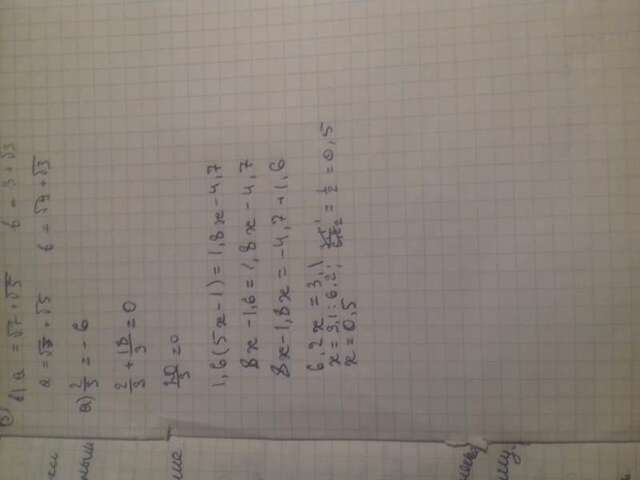 в) a = √7 + √5 b = 3 + √3
a = √7 + √5 b = √9 + √3
а) 2/3 = - 6
2/3 + 18/3 = 0
20/3 = 0
1,6(5x-1) = 1,8x - 4,7
8x - 1,6 = 1,8x - 4,7
8x - 1,8x = -4,7 + 1,6
6,2x = 3,1
x = 3,1 : 6,2; = 1/2 = 0,5
x = 0,5